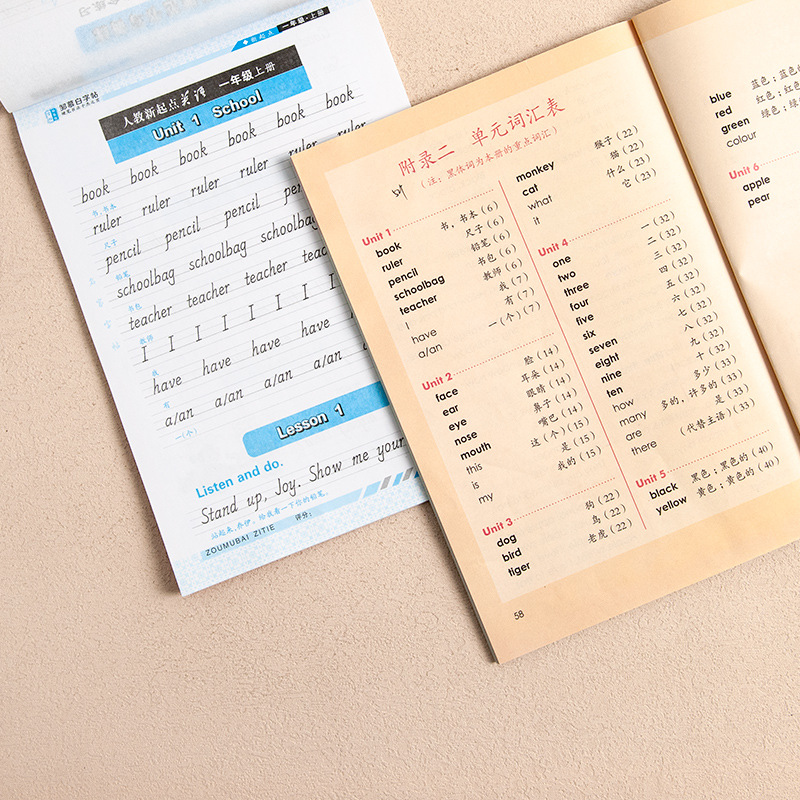 一年级·上册
邹慕白字帖
人教新起点英语 一年级上册
Unit 1 School
book book book book book book
书,书本
ruler ruler ruler ruler ruler
尺子
pencil pencil pencil pencil
铅笔
schoolbag schoolbag schoolbag
书包
teacher teacher teacher teacher
教师
I I I I I I I I
我
have have have have
有
a/an a/an a/an a/an
一(个)
Lesson 1
Listen and do.
Stand up, Joy. Show me your
站起来,乔伊。给我看一下你的铅笔。
ZOUMUBAI ZITIE 评分:
附录二 单元词汇表
(注:黑体词为本册的重点词汇)
Unit 1
book 书,书本(6)
ruler 尺子(6)
pencil 铅笔(6)
schoolbag 书包(6)
teacher 教师(6)
I 我(7)
have 有(7)
a/an 一(个)(7)
Unit 2
face 脸(14)
ear 耳朵(14)
eye 眼睛(14)
nose 鼻子(14)
mouth 嘴巴(14)
this 这(个)(15)
is 是(15)
my 我的(15)
Unit 3
dog 狗(22)
bird 鸟(22)
tiger 老虎(22)
58
monkey 猴子(22)
cat 猫(22)
what 什么(23)
it 它(23)
Unit 4
one 一(32)
two 二(32)
three 三(32)
four 四(32)
five 五(32)
six 六(32)
seven 七(32)
eight 八(32)
nine 九(32)
ten 十(32)
how 多少(33)
many 多的,许多的(33)
are 是(33)
there (代替主语)(33)
Unit 5
black 黑色;黑色的(40)
yellow 黄色;黄色的(40)
blue 蓝色;蓝色的
red 红色;红色
green 绿色;绿色
colour
Unit 6
apple
pear